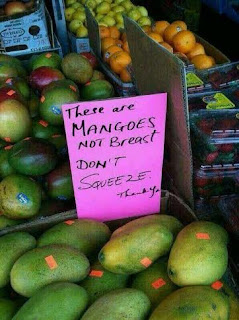 These are
MANGOES
NOT Breast
DON'T
SQUEEZE.
Thank you